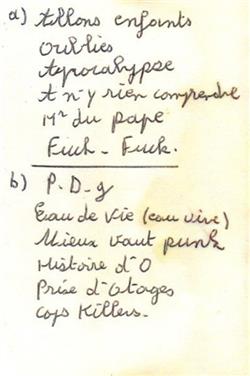 a) Allons enfants
Oubliés
Apocalypse
A n-y rien comprendre
Mr du pape
Fuck - Fuck.
b) P. D- g
Eau de vie (eau vive)
Mieux vaut punk
Histoire d'O
Prise d'otages
Cops Killers.